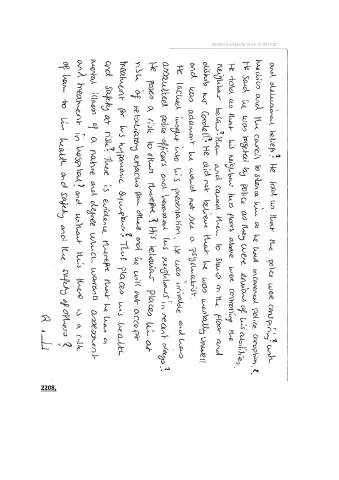 and delusional beliefs? He told us that the police were 'conspiring' with
medics and the council to silence him as he had uncovered police corruption?
He said he was targeted by police as they were envious of his abilities,
He told us that his neighbour two floors above were controlling the
neighbour below? them and caused them to stamp on the floor and
disturb Mr Goodell? He did not believe that he was mentally unwell
and was adamant he would not see a psychiatrist.
He lacked insight into his presentation. He was irritable and has
assaulted police officers and harassed his neighbours in recent days?
He poses a risk to others therefore? His behaviour places him at
risk of retaliatory attacks from others and he will not accept
treatment for his hypomanic symptoms? This places his health
and safety at risk? There is evidence therefore that he has a
mental illness of a nature and degree which warrants assessment
and treatment in hospital? and without this there is a risk
of harm to his health and safety and the safety of others?
2208,